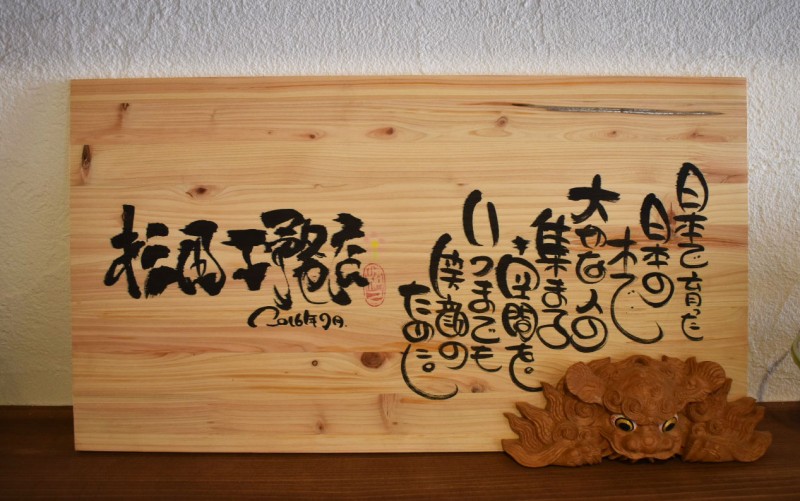 日本で育った
日本の
木で
大切な人の
集まる
空間を。
いつまでも
笑顔の
ために。
工務店
2016年7月.